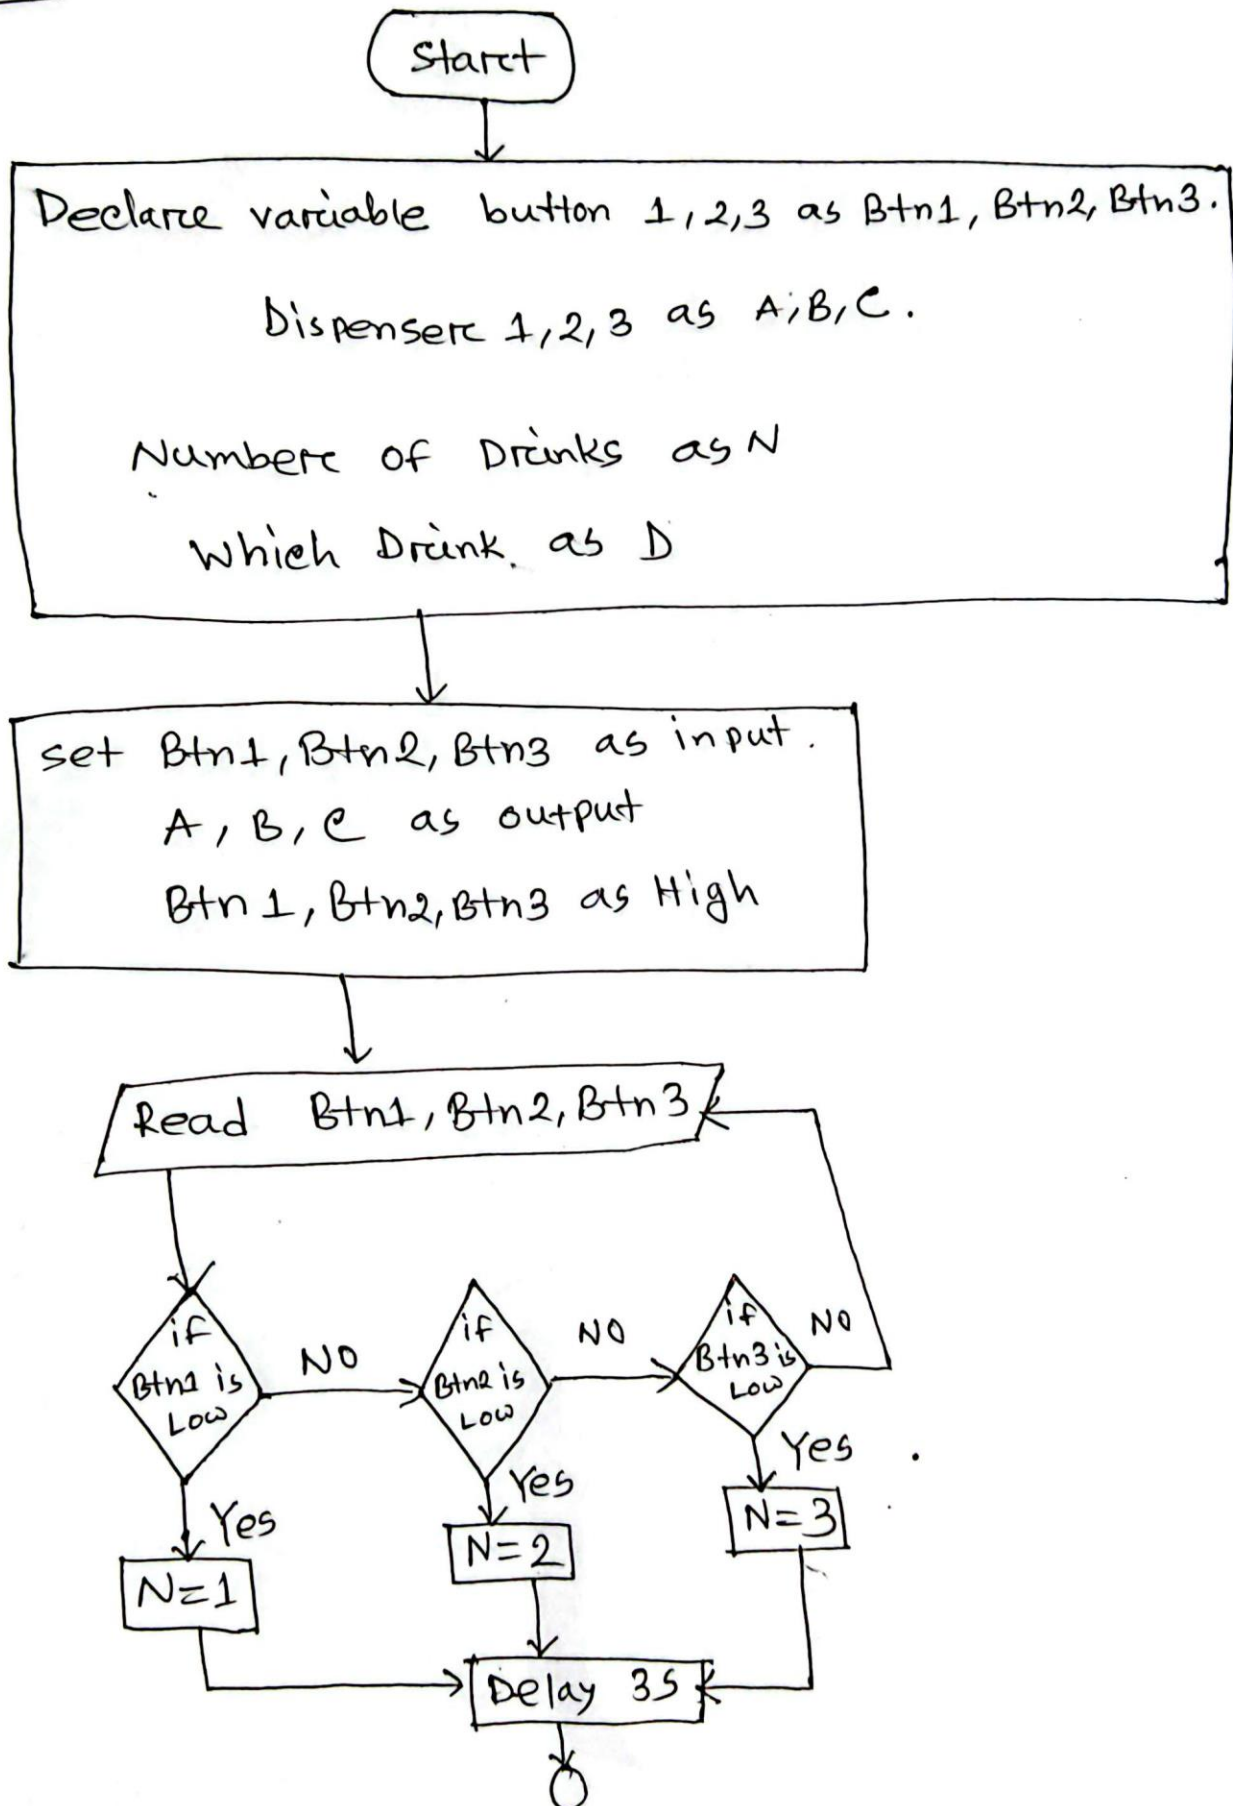 Start
Declare variable button 1,2,3 as Btn1, Btn2, Btn3.
Dispenser 1,2,3 as A,B,C.
Number of Drinks as N
Which Drink. as D
set Btn1, Btn2, Btn3 as input.
A, B, C as output
Btn 1, Btn2, Btn3 as High
Read Btn1, Btn2, Btn3
if
Btn1 is
Low
NO
if
Btn2 is
Low
NO
if
Btn3 is
Low
NO
Yes
N=1
Yes
N=2
Yes
N=3
Delay 3s